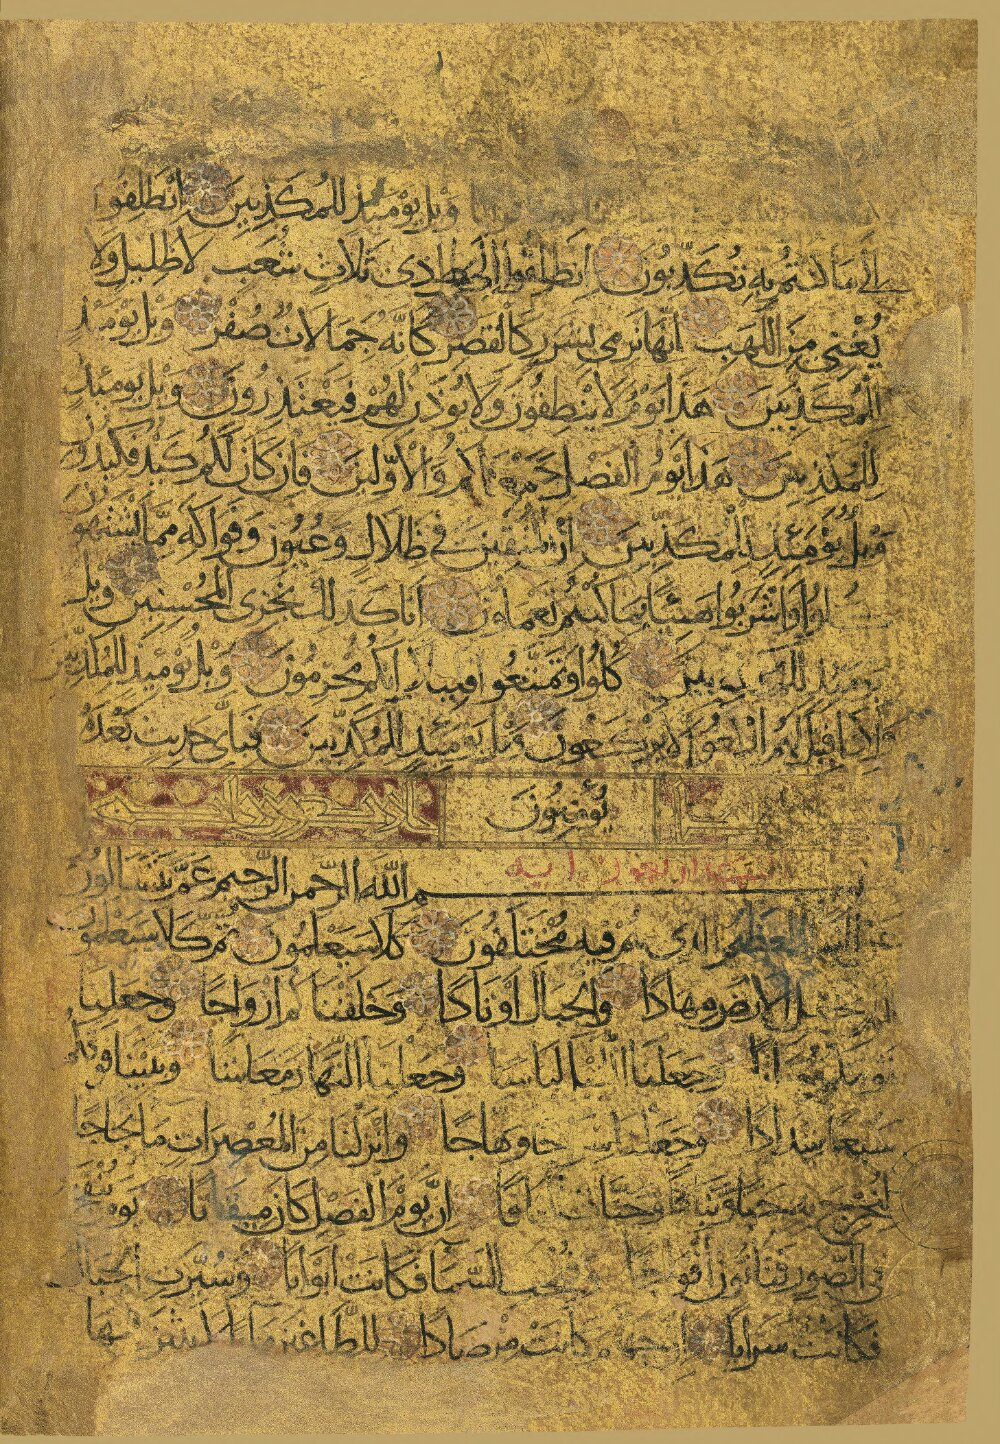 ويل يومئذ للمكذبين انطلقوا
الى ما كنتم به تكذبون انطلقوا الى ظل ذى ثلاث شعب لا ظليل ولا
يغنى من اللهب انها ترمى بشرر كالقصر كانه جمالات صفر ويل يومئذ
للمكذبين هذا يوم لا ينطقون ولا يؤذن لهم فيعتذرون ويل يومئذ
للمكذبين هذا يوم الفصل جمعناكم والاولين فان كان لكم كيد فكيدون
ويل يومئذ للمكذبين ان المتقين فى ظلال وعيون وفواكه مما يشتهون
كلوا واشربوا هنيئا بما كنتم تعملون انا كذلك نجزى المحسنين ويل
يومئذ للمكذبين كلوا وتمتعوا قليلا انكم مجرمون ويل يومئذ للمكذبين
واذا قيل لهم اركعوا لا يركعون ويل يومئذ للمكذبين فباى حديث بعده
يؤمنون
بسم الله الرحمن الرحيم عم يتسالون
عن النبا العظيم الذى هم فيه مختلفون كلا سيعلمون ثم كلا سيعلمون
الم نجعل الارض مهادا والجبال اوتادا وخلقناكم ازواجا وجعلنا
نومكم سباتا وجعلنا الليل لباسا وجعلنا النهار معاشا وبنينا فوقكم
سبعا شدادا وجعلنا سراجا وهاجا وانزلنا من المعصرات ماء ثجاجا
لنخرج به حبا ونباتا وجنات الفافا ان يوم الفصل كان ميقاتا يوم ينفخ
فى الصور فتاتون افواجا وفتحت السما فكانت ابوابا وسيرت الجبال
فكانت سرابا ان جهنم كانت مرصادا للطاغين مابا لابثين فيها